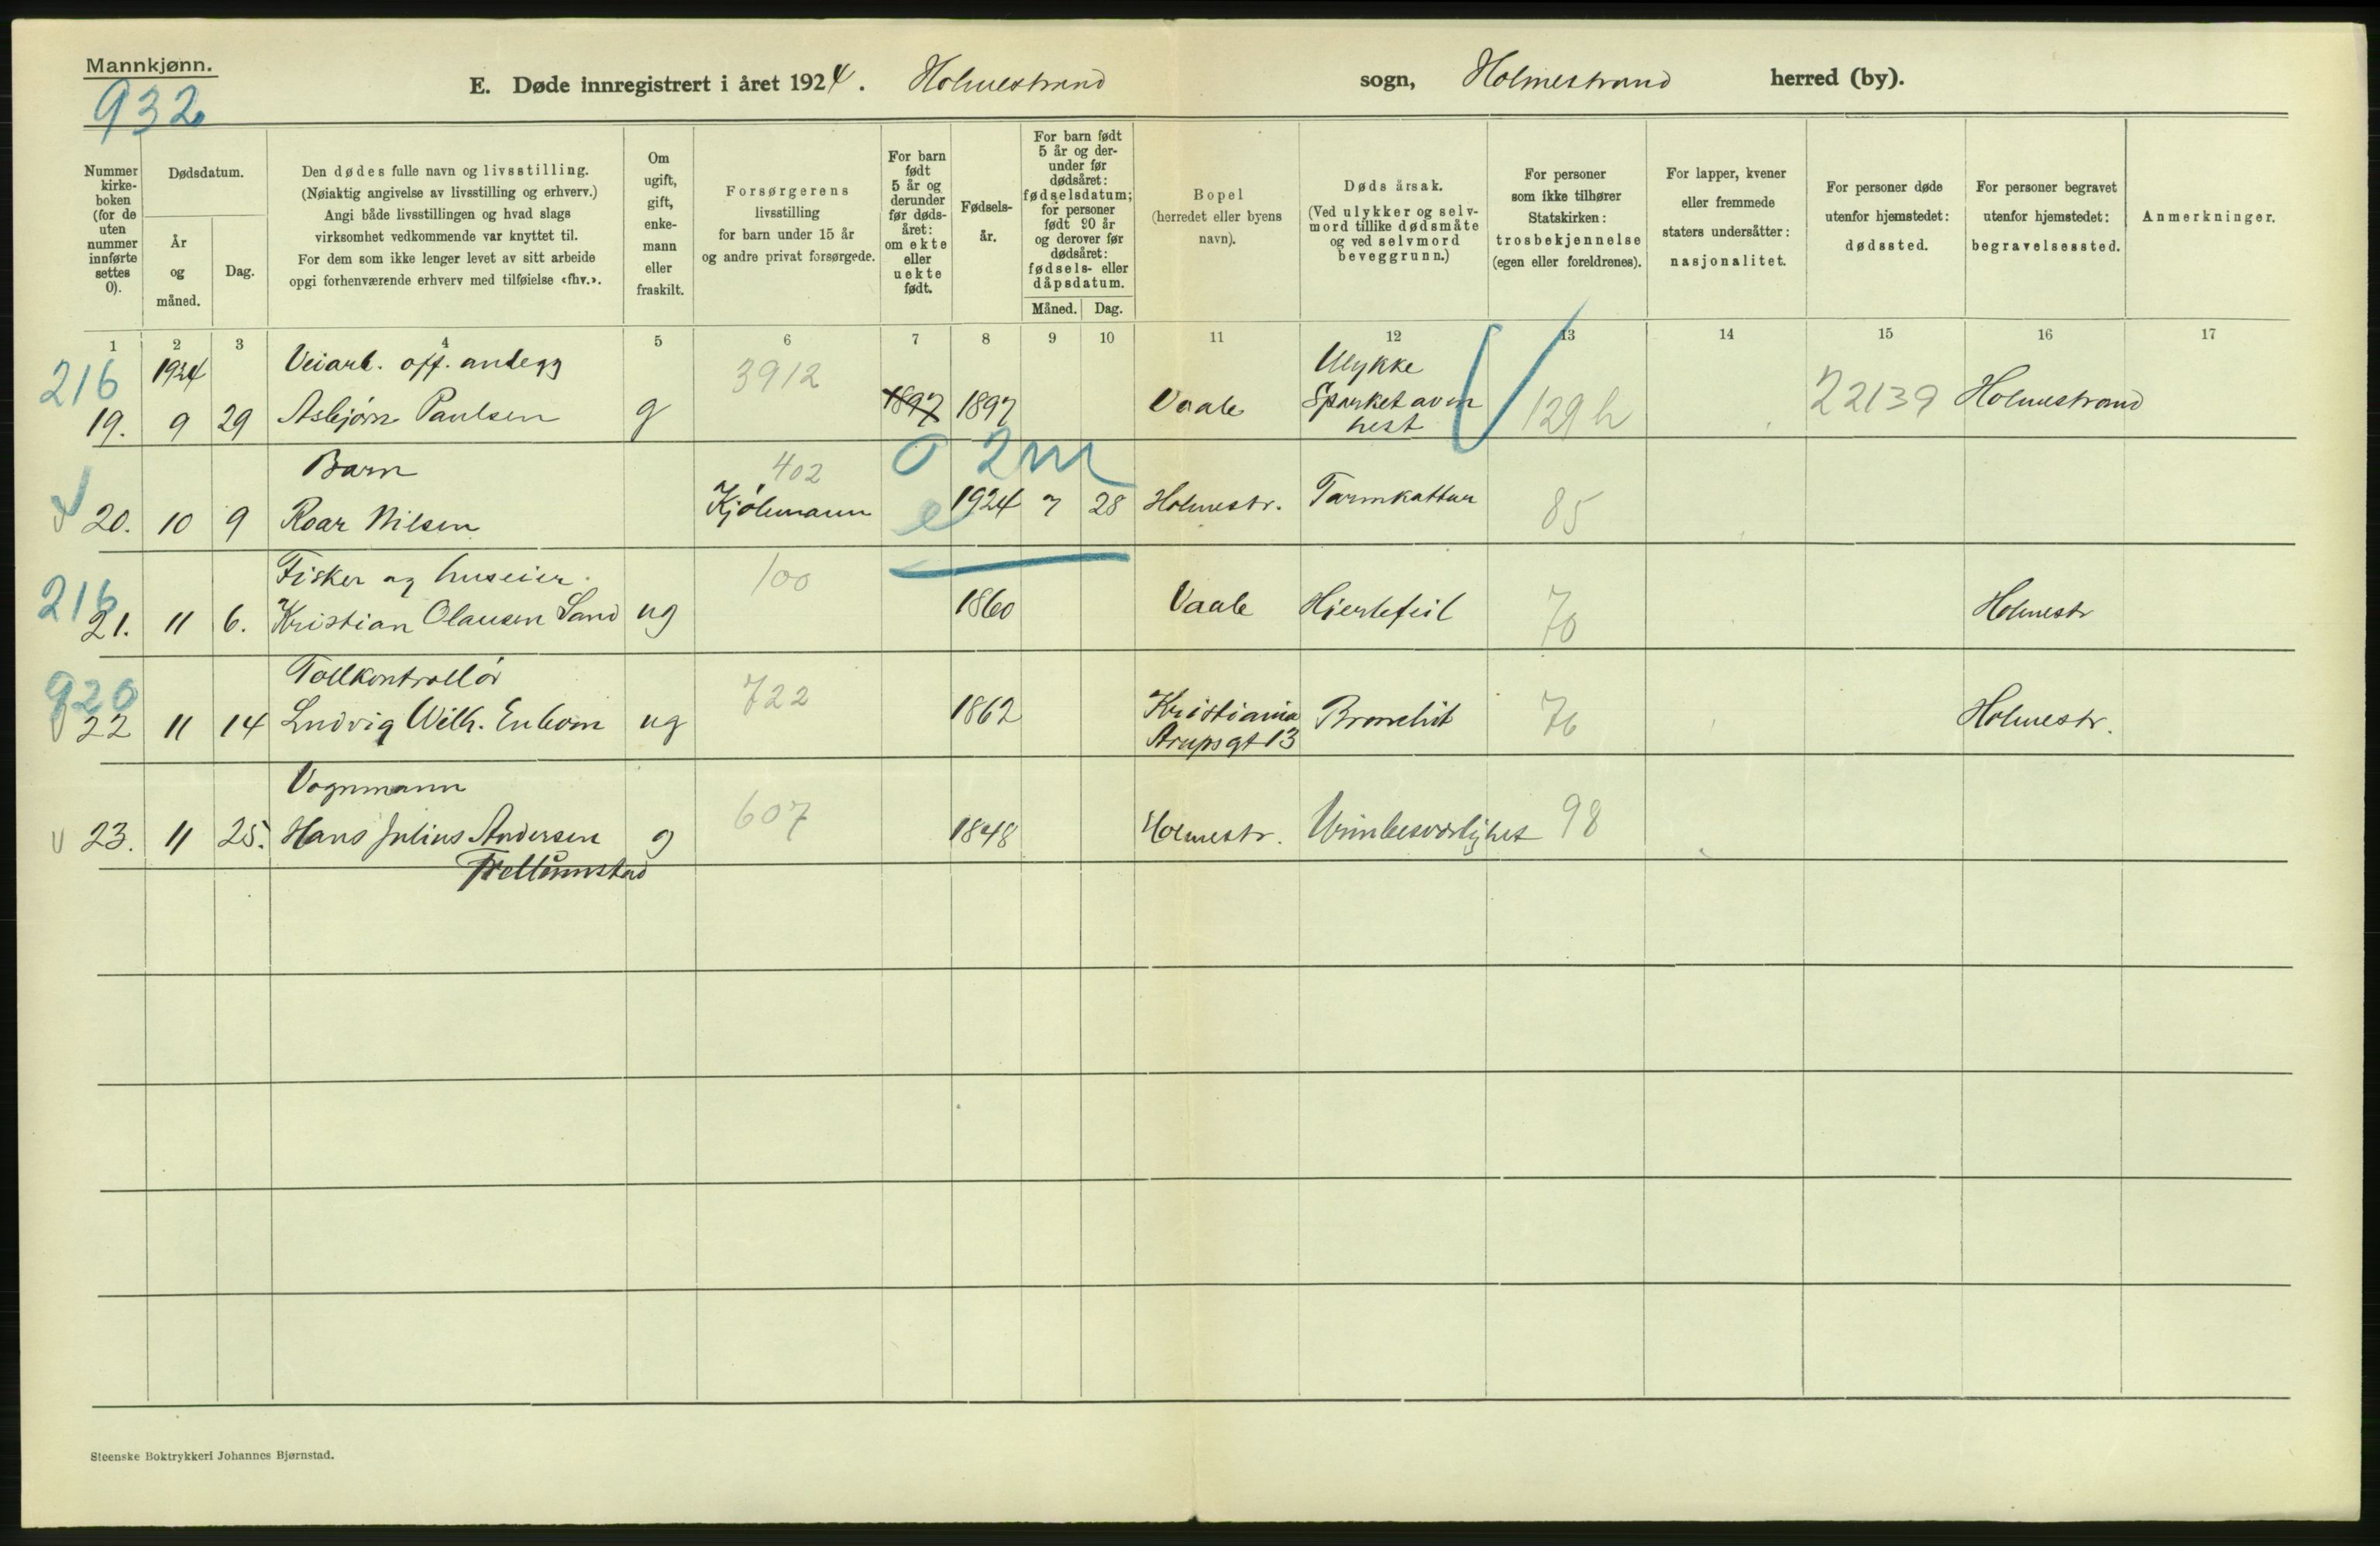 Mannkjønn.
932
E. Døde innregistrert i året 1924. Holmestrand sogn, Holmestrand herred (by).
Nummer kirke-boken (for de uten nummer innførte settes 0).
Dødsdatum.
År og måned.
Dag.
Den dødes fulle navn og livsstilling.
(Nøiaktig angivelse av livsstilling og erhverv.)
Angi både livsstillingen og hvad slags
virksomhet vedkommende var knyttet til.
For dem som ikke lenger levet av sitt arbeide
opgi forhenværende erhverv med tilføielse «fhv.».
Om ugift, gift, enke-mann eller fraskilt.
Forsørgerens
livsstilling
for barn under 15 år
og andre privat forsørgede.
For barn født 5 år og derunder før døds-året: om ekte eller uekte født.
Fødsels-år.
For barn født 5 år og der-under før dødsåret: fødselsdatum; for personer født 90 år og derover før dødsåret: fødsels- eller dåpsdatum.
Måned. Dag.
Bopel
(herredet eller byens
navn).
Døds årsak.
(Ved ulykker og selv-
mord tillike dødsmåte
og ved selvmord
beveggrunn.)
For personer
som ikke tilhører
Statskirken:
trosbekjennelse
(egen eller foreldrenes).
For lapper, kvener
eller fremmede
staters undersåtter:
nasjonalitet.
For personer døde
utenfor hjemstedet:
dødssted.
For personer begravet
utenfor hjemstedet:
begravelsessted.
Anmerkninger.
1 2 3 4 5 6 7 8 9 10 11 12 13 14 15 16 17
216 1924 Veiarb. off. anlegg 3912 Ulykke
19. 9 29 Asbjørn Paulsen g 1897 1897 Vaale Sparket av en hest 129 h 22139 Holmestrand
Barn 402 0 2m
20. 10 9 Roar Nilsen Kjølmann e 1924 7 28 Holmestr. Tarmkattar 85
216 Fisker og huseier 100
21. 11 6. Kristian Olausen Sand ug 1860 Vaale Hjertefeil 70 Holmestr
920 Tollkontrollør 722
22 11 14 Ludvig Wilh. Enbom ug 1862 Kristiania Arupsgt 13 Bronchit 76 Holmestr.
Vognmann 607
23. 11 25. Hans Julius Andersen g 1848 Holmestr. Urinbesværlighet 98
Steenske Boktrykkeri Johannes Bjørnstad.